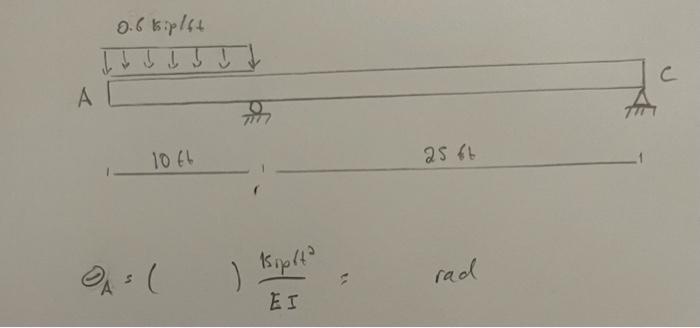 0.6 kip/ft
A
C
10 ft
25 ft
θA = ( ) kip ft² / EI = rad